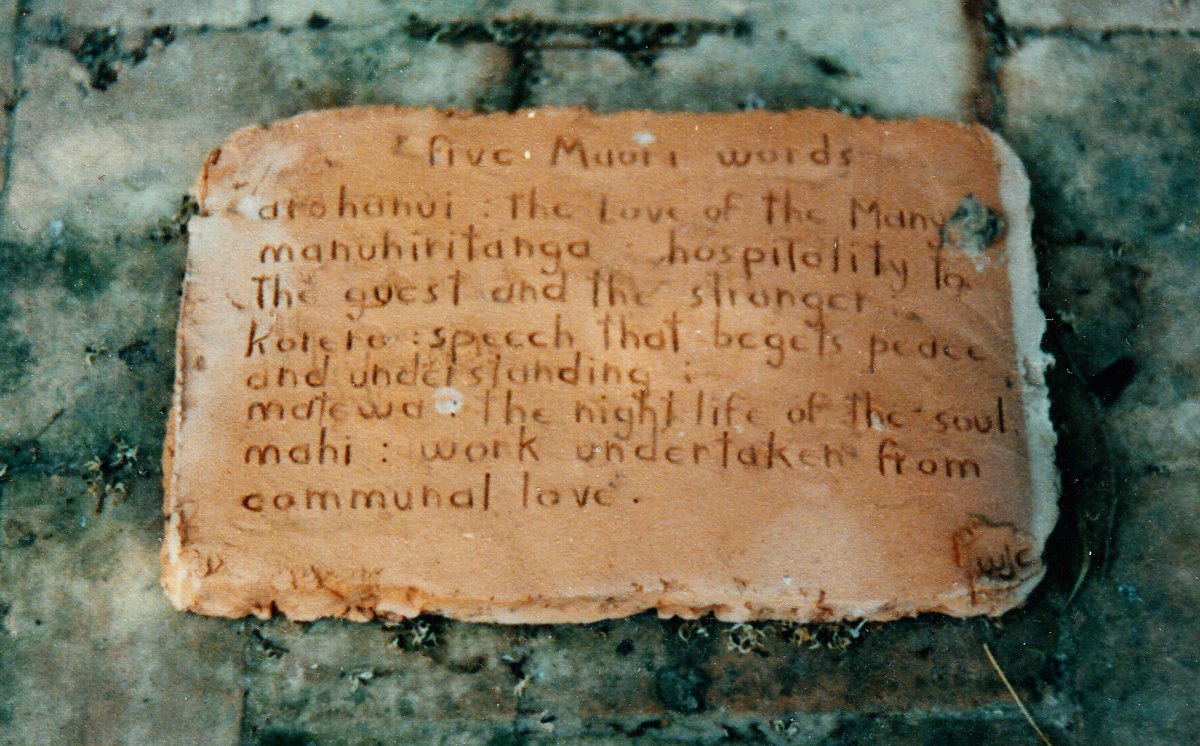 five Maori words
arohanui : the Love of the Many
manuhiritanga : hospitality to
the guest and the stranger :
korero : speech that begets peace
and understanding :
matewa : the night life of the soul
mahi : work undertaken from
communal love .